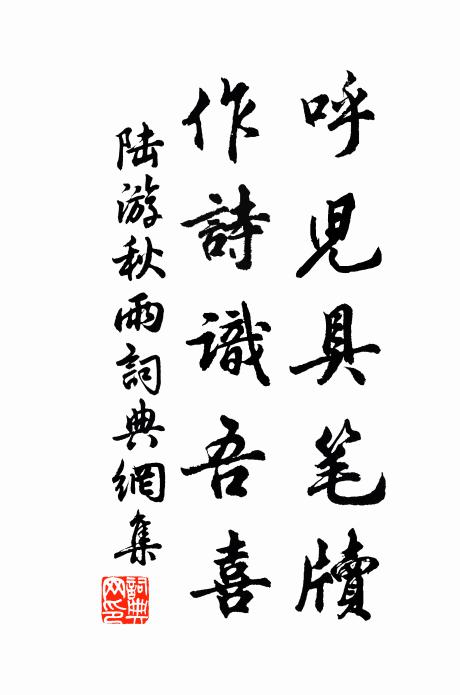 呼兒具笔牘
作詩識吾喜
陸游秋雨詞典網集
詞典网印